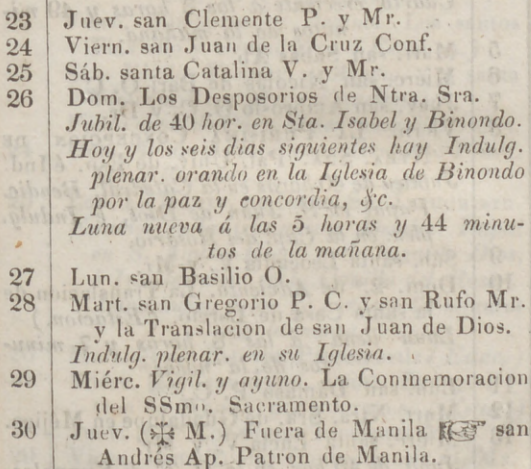 23 Juev. san Clemente P. y Mr.
24 Viern. san Juan de la Cruz Conf.
25 Sáb. santa Catalina V. y Mr.
26 Dom. Los Desposorios de Ntra. Sra.
Jubil. de 40 hor. en Sta. Isabel y Binondo.
Hoy y los seis dias siguientes hay Indulg.
plenar. orando en la Iglesia de Binondo
por la paz y concordia, &c.
Luna nueva á las 5 horas y 44 minu-
tos de la mañana.
27 Lun. san Basilio O.
28 Mart. san Gregorio P. C. y san Rufo Mr.
y la Translacion de san Juan de Dios.
Indulg. plenar. en su Iglesia.
29 Miérc. Vigil. y ayuno. La Conmemoracion
del SSmo. Sacramento.
30 Juev. (✠ M.) Fuera de Manila ☞ san
Andrés Ap. Patron de Manila.